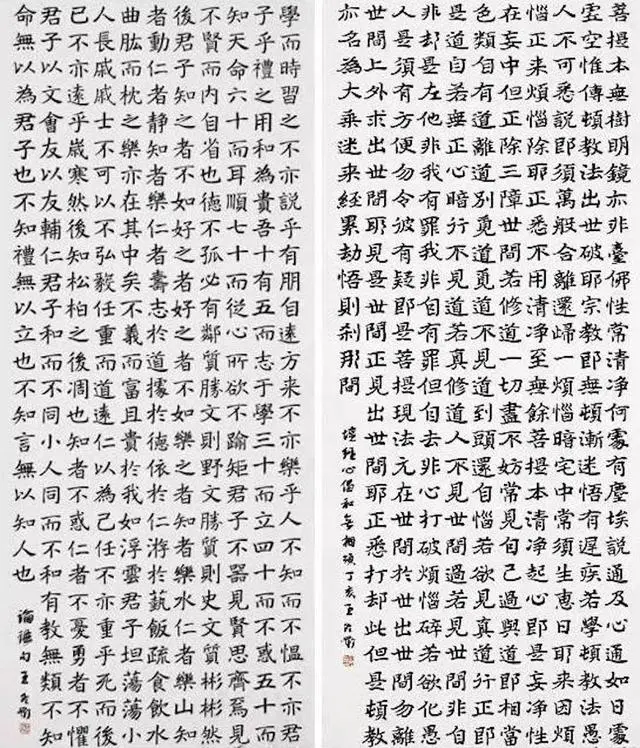 菩提本無樹明鏡亦非臺佛性常清淨何處有塵埃說通及心通如日處
虛空惟傳頓教法出世破耶宗教即無頓漸迷悟有遲疾若學頓教法愚
人不可悉說即須萬般合離還歸一煩惱暗宅中常須生惠日耶來因煩
惱正來煩惱除耶正悉不用清淨至無餘菩提本清淨起心即是妄淨性
在妄中但正除三障世間若修道一切盡不妨常見自己過與道即相當
色類自有道離道別覓道覓道不見道到頭還自惱若欲見真道行正即
是道自若無正心暗行不見道若真修道人不見世間愚若見世間非自
非却是左他非我有罪我非自有罪但自去非心打破煩惱碎若欲化愚
人是須有方便勿令彼有疑即是菩提現法元在世間於世出世間勿離
世間上外求出世間耶見是世間正見出世間耶正悉打却此但是頓教
亦名為大乘迷來經累劫悟則剎那間
壇經心偈和無相頌丁亥王
學而時習之不亦說乎有朋自遠方來不亦樂乎人不知而不慍不亦君
子乎禮之用和為貴吾十有五而志于學三十而立四十而不惑五十而
知天命六十而耳順七十而從心所欲不踰矩君子不器見賢思齊焉見
不賢而內自省也德不孤必有鄰質勝文則野文勝質則史文質彬彬然
後君子知之者不如好之者好之者不如樂之者知者樂水仁者樂山知
者動仁者靜知者樂仁者壽志於道據於德依於仁游於藝飯疏食飲水
曲肱而枕之樂亦在其中矣不義而富且貴於我如浮雲君子坦蕩蕩小
人長戚戚士不可以不弘毅任重而道遠仁以為己任不亦重乎死而後
已不亦遠乎歲寒然後知松柏之後凋也知者不惑仁者不憂勇者不懼
君子以文會友以友輔仁君子和而不同小人同而不和有教無類不知
命無以為君子也不知禮無以立也不知言無以知人也
論語句王